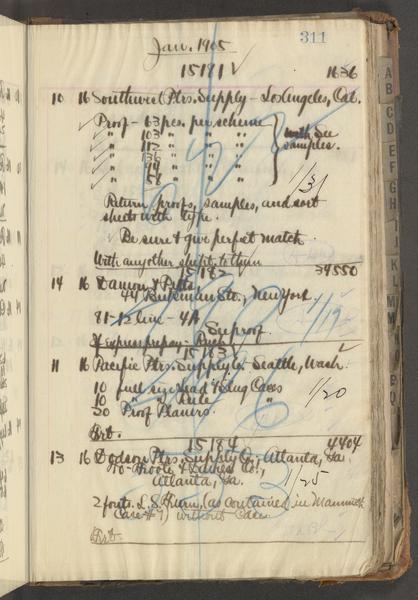 Jan. 1905
311
15181 ✓ 1636
10 16 Southwest Ptrs. Supply - Los Angeles, Cal.
Proof - 63 pcs. per scheme
" 103 " " " with See
" 112 " " " samples.
" 136 " " "
" 44 " " "
" 58 " " "
1/31
Return proofs, samples, and sort
sheets with type.
Be sure & give perfect match
With any other shipt. to them
15182 34550
14 16 Damon & Peets
44 Beekman St., New York
1/19
81-12 line - 4A
See proof.
If express prepay - Rush
15183
11 16 Pacific Ptrs. Supply Co. Seattle, Wash.
10 full size Lead & Slug Cases
10 " " Rule "
1/20
30 Proof Planers.
Frt.
15184 4404
13 16 Dodson Ptrs. Supply Co., Atlanta, Ga.
Co.,
Atlanta, Ga.
1/25
2 fonts L.S. (as contained in Mammoth
Case #9) without Case.
Frt.
A
B
C
D
E
F
G
H
I
J
K
L
M